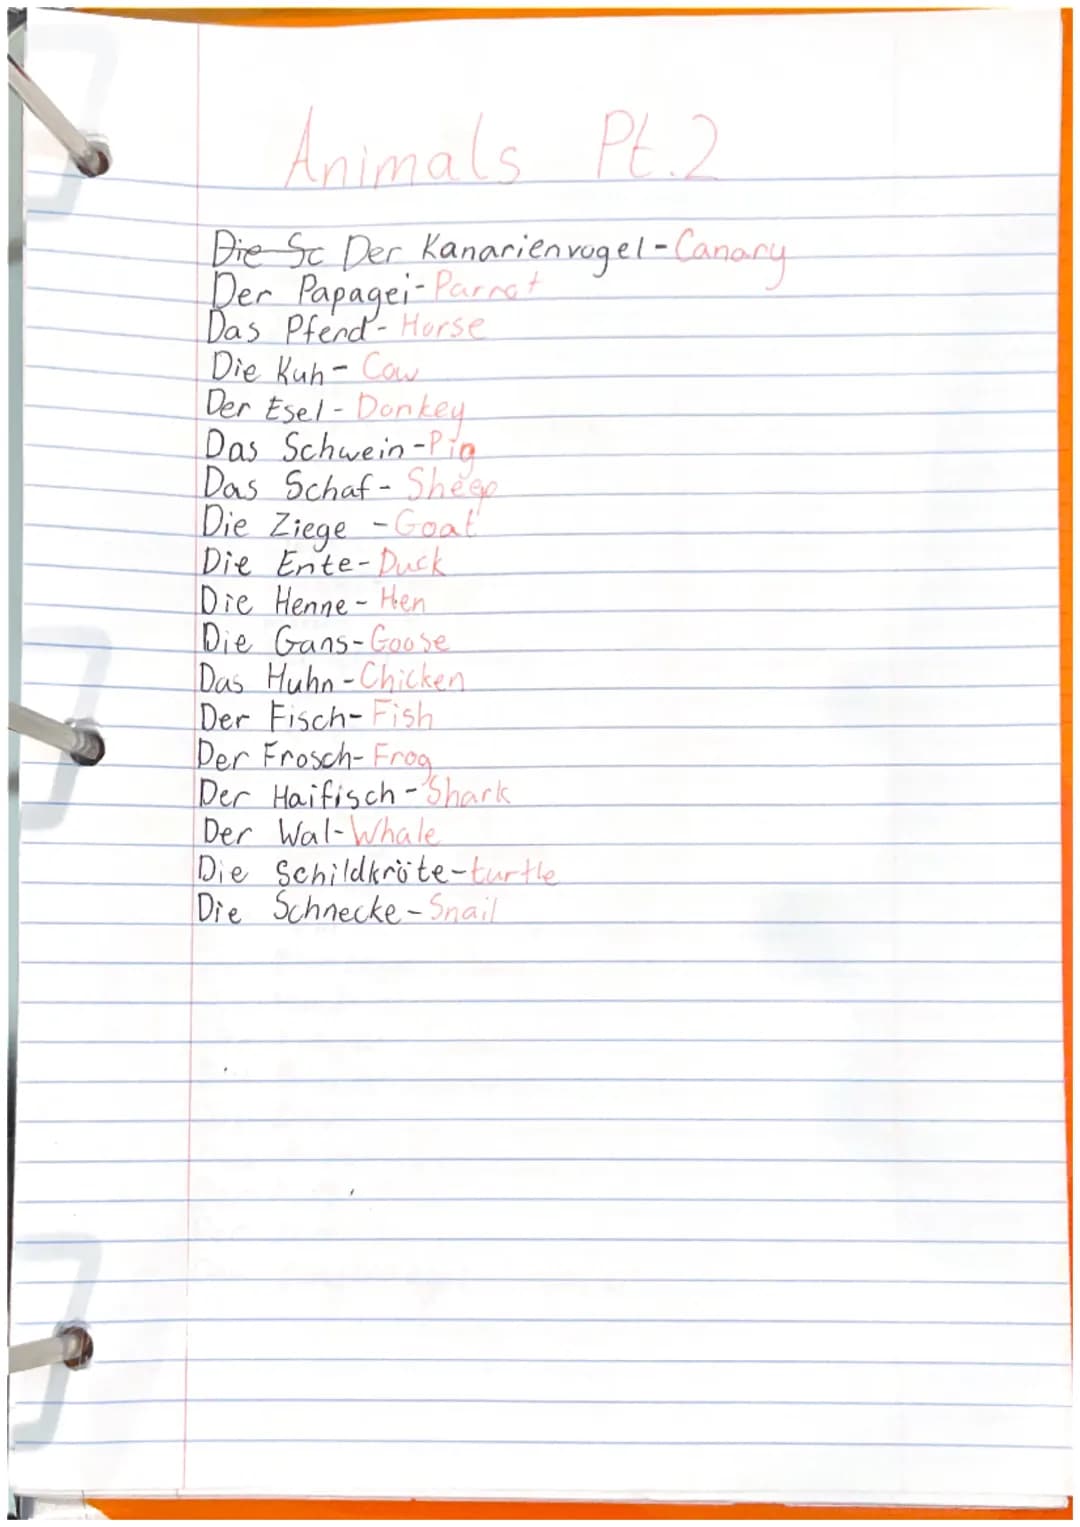 Animals Pt.2
Die Sc Der Kanarienvogel - Canary
Der Papagei - Parrot
Das Pferd - Horse
Die Kuh - Cow
Der Esel - Donkey
Das Schwein - Pig
Das Schaf - Sheep
Die Ziege - Goat
Die Ente - Duck
Die Henne - Hen
Die Gans - Goose
Das Huhn - Chicken
Der Fisch - Fish
Der Frosch - Frog
Der Haifisch - Shark
Der Wal - Whale
Die Schildkröte - turtle
Die Schnecke - Snail